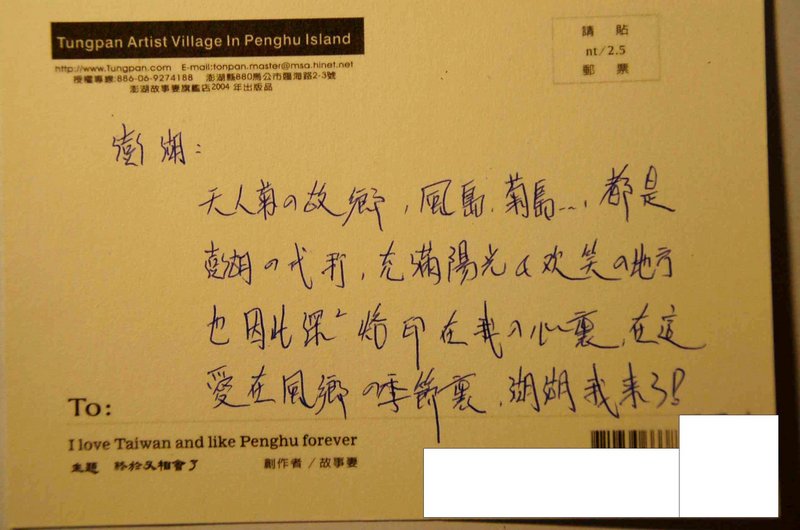 Tungpan Artist Village In Penghu Island
http://www.Tungpan.com E-mail:tonpan.master@msa.hinet.net
授權專線:886-06-9274188 澎湖縣880馬公市臨海路2-3號
澎湖故事妻旗艦店2004年出版品
請貼
nt/2.5
郵票
澎湖:
天人菊の故鄉,風島.菊島...,都是
澎湖の代称,充滿陽光&欢笑の地方
也因此深²烙印在我の心裏,在這
愛在風鄉の季節裏,湖湖我來了!
To:
I love Taiwan and like Penghu forever
主題 終於又相會了 創作者/故事妻